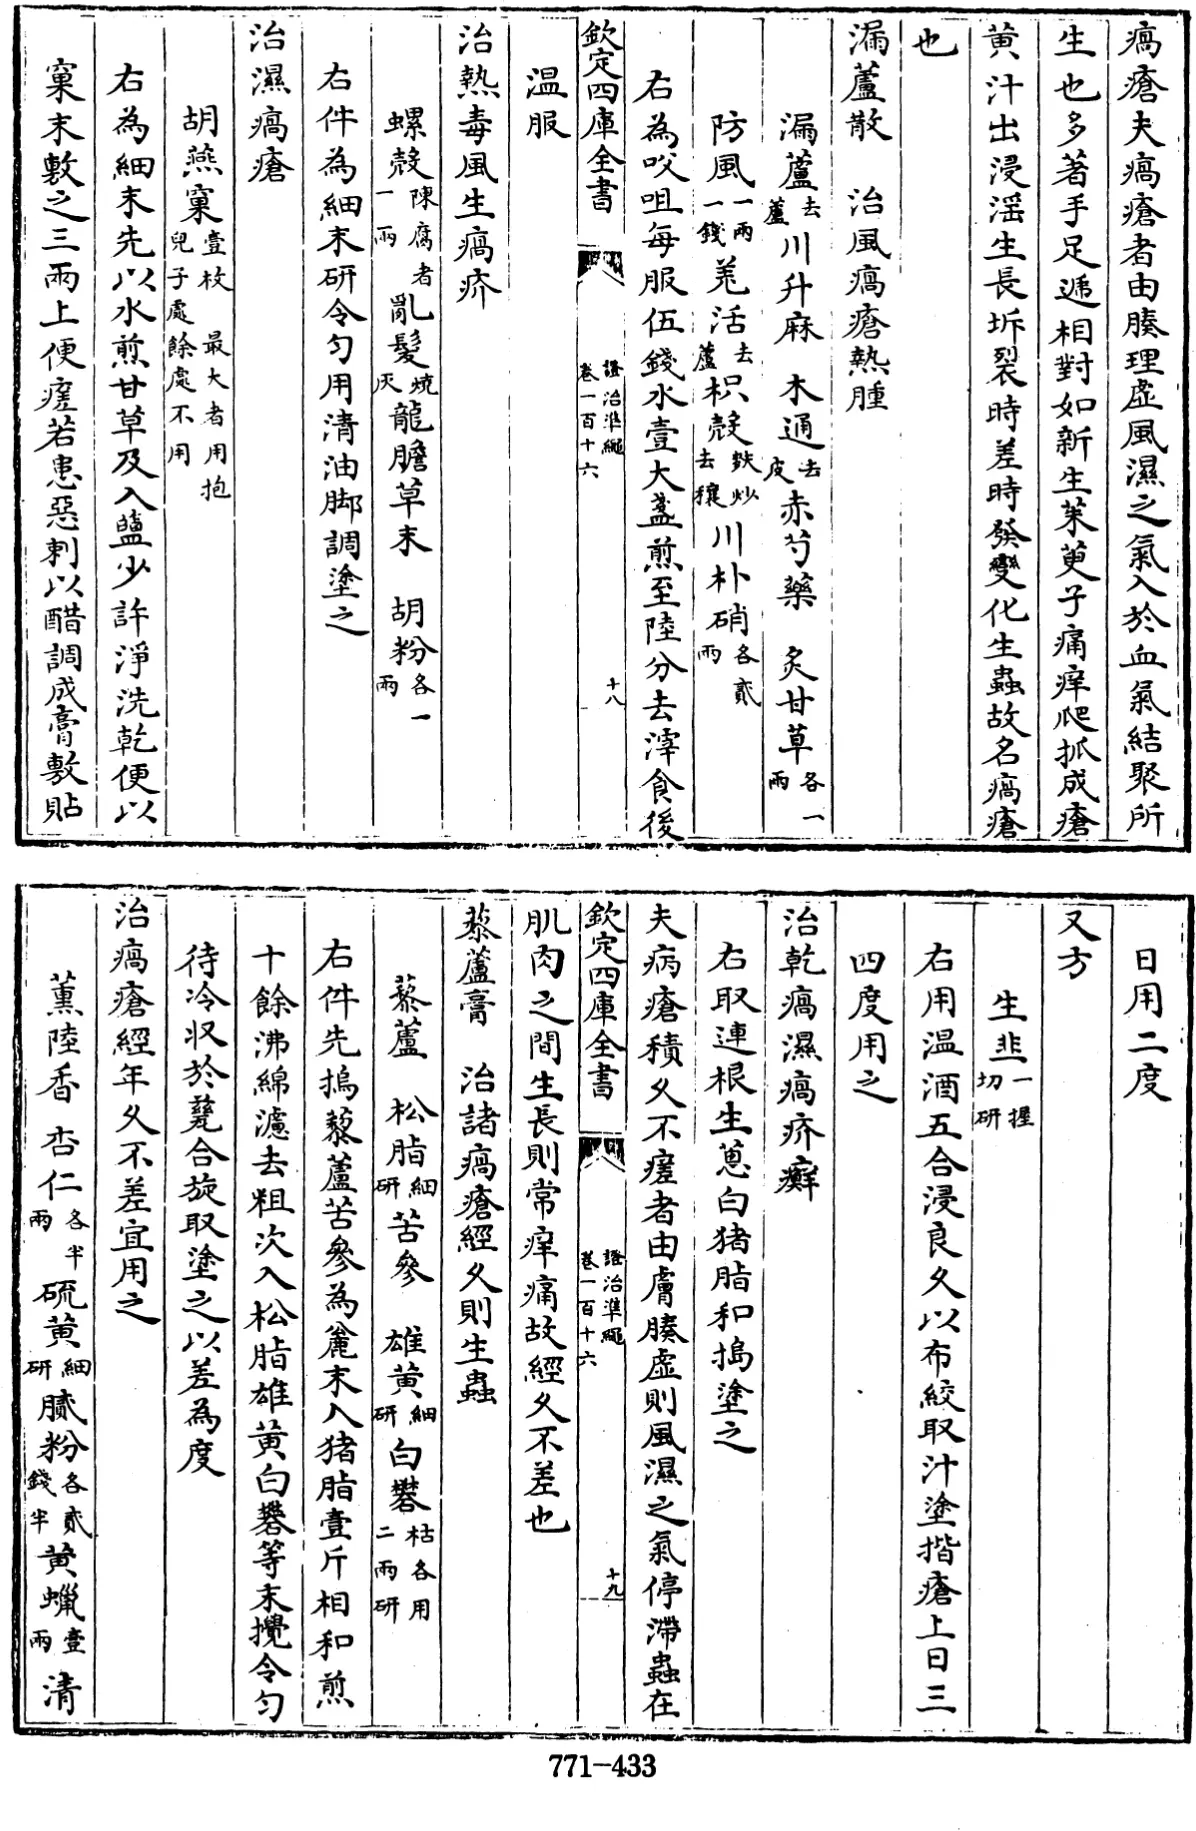 瘑瘡夫瘑瘡者由腠理虛風濕之氣入於血氣結聚所
生也多著手足遞相對如新生茱萸子痛痒爬抓成瘡
黄汁出浸淫生長坼裂時差時發變化生蟲故名瘑瘡
也
漏蘆散　治風瘑瘡熱腫
漏蘆去蘆川升麻　木通去皮赤芍藥　炙甘草各一兩
防風一兩一錢羌活去蘆枳殼麩炒去穰川朴硝各貳兩
右為㕮咀每服伍錢水壹大盞煎至陸分去滓食後
欽定四庫全書　證治準繩卷一百十六　十八
温服
治熱毒風生瘑疥
螺殼陳腐者一兩亂髮燒灰龍膽草末　胡粉各一兩
右件為細末研令匀用清油脚調塗之
治濕瘑瘡
胡燕窠壹枚最大者用抱兒子處餘處不用
右為細末先以水煎甘草及入鹽少許淨洗乾便以
窠末敷之三兩上便瘥若患惡刺以醋調成膏敷貼
日用二度
又方
生韭一握切研
右用温酒五合浸良久以布絞取汁塗揩瘡上日三
四度用之
治乾瘑濕瘑疥癬
右取連根生蔥白猪脂和搗塗之
夫病瘡積久不瘥者由膚腠虛則風濕之氣停滯蟲在
欽定四庫全書　證治準繩卷一百十六　十九
肌肉之間生長則常痒痛故經久不差也
藜蘆膏　治諸瘑瘡經久則生蟲
藜蘆　松脂細研苦參　雄黄細研白礬枯各用二兩研
右件先搗藜蘆苦參為麄末入猪脂壹斤相和煎
十餘沸綿濾去粗次入松脂雄黄白礬等末攪令匀
待冷收於甆合旋取塗之以差為度
治瘑瘡經年久不差宜用之
薫陸香　杏仁各半兩硫黄細研膩粉各貳錢半黄蠟壹兩清
771-433